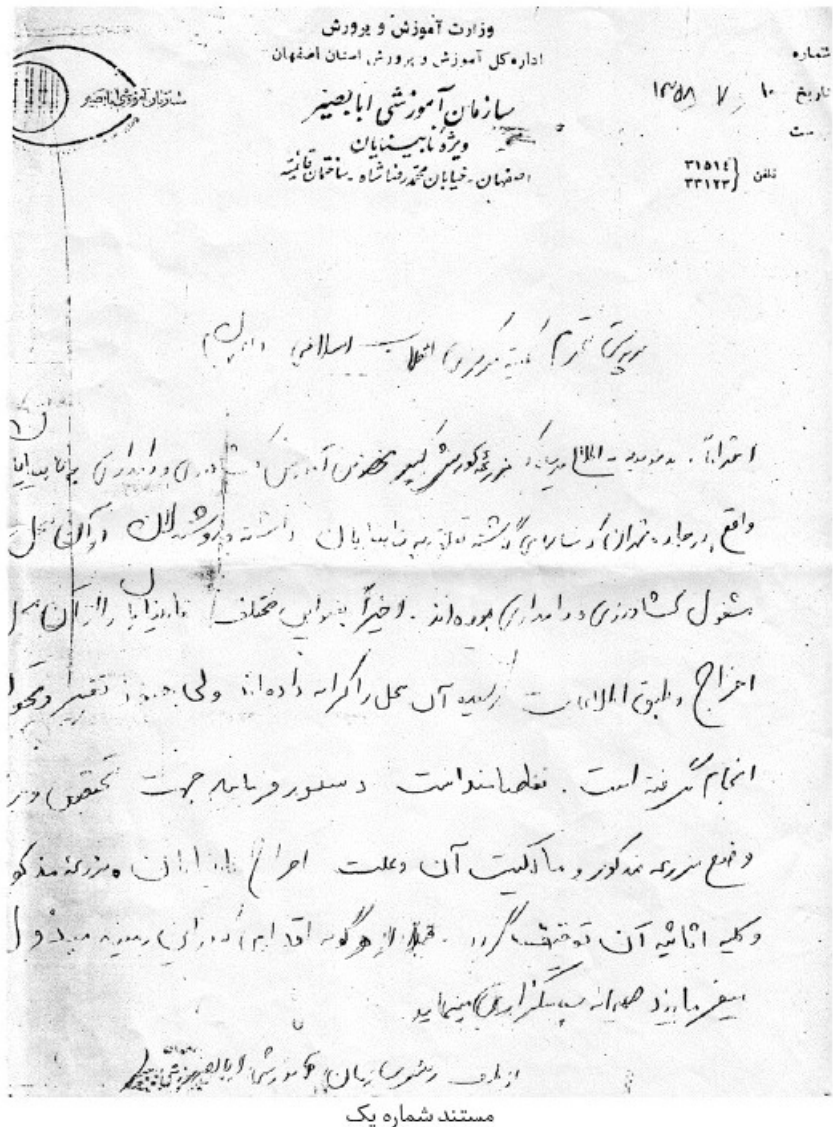 وزارت آموزش و پرورش
اداره کل آموزش و پرورش استان اصفهان
سازمان آموزشی ابابصیر
ویژه نابینایان
اصفهان - خیابان محمدرضا شاه - ساختمان قائمیه
سازمان آموزشی ابابصیر
شماره
تاریخ ۱۰ / ۷ / ۱۳۵۸
تلفن ۳۱۵۱۴
۳۳۱۷۳
سرپرستی محترم کمیته مرکزی انقلاب اسلامی
احتراماً، بدینوسیله باطلاع میرساند مزرعه کورش کبیر مخصوص آموزش کشاورزی و دامداری به نابینایان
واقع در جاده تهران که سالهای گذشته تعلق به نابینایان داشته و روشندلان در آن محل
مشغول کشاورزی و دامداری بوده‌اند. اخیراً بعناوین مختلف نابینایان را از آن محل
اخراج و طبق اطلاعات رسیده آن محل را کرایه داده‌اند ولی هنوز تغییر و تحول
انجام نگرفته است. تقاضامند است دستور فرمایید جهت تحقیق
وضع مزرعه مذکور و مالکیت آن و علت اخراج نابینایان مزرعه مذکور
و کلیه اثاثیه آن توقیف گردد. قبلاً از هرگونه اقدامی که در این زمینه مبذول
میفرمایید صمیمانه سپاسگزاری مینماید
از طرف سازمان آموزشی ابابصیر
مستند شماره یک